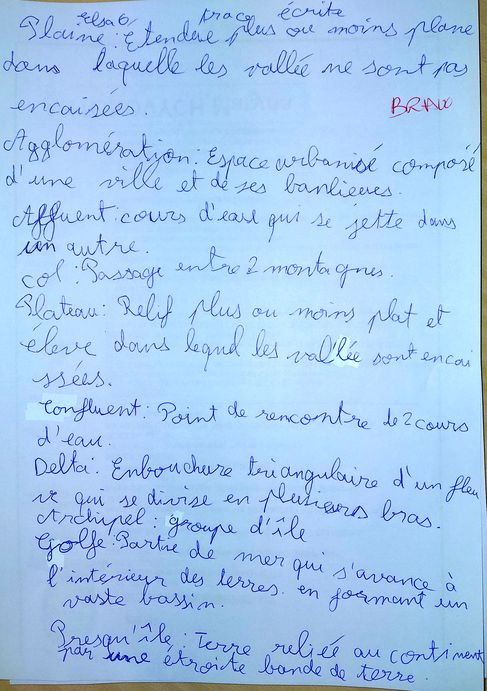 Elsa 6 trace écrite
Plaine : Etendue plus ou moins plane
dans laquelle les vallée ne sont pas
encaisées.
BRAVO
Agglomération : Espace urbanisé composé
d'une ville et de ses banlieues.
Affluent : cours d'eau qui se jette dans
un autre.
col : Passage entre 2 montagnes.
Plateau : Relif plus ou moins plat et
éleve dans lequel les vallée sont encai
ssées.
Confluent : Point de rencontre de 2 cours
d'eau.
Delta : Enbouchure triangulaire d'un fleu
ve qui se divise en plusieurs bras.
Archipel : groupe d'île
Golfe : Partie de mer qui s'avance à
l'intérieur des terres. en formant un
vaste bassin.
Presqu'île : Terre reliée au continent
par une étroite bande de terre.